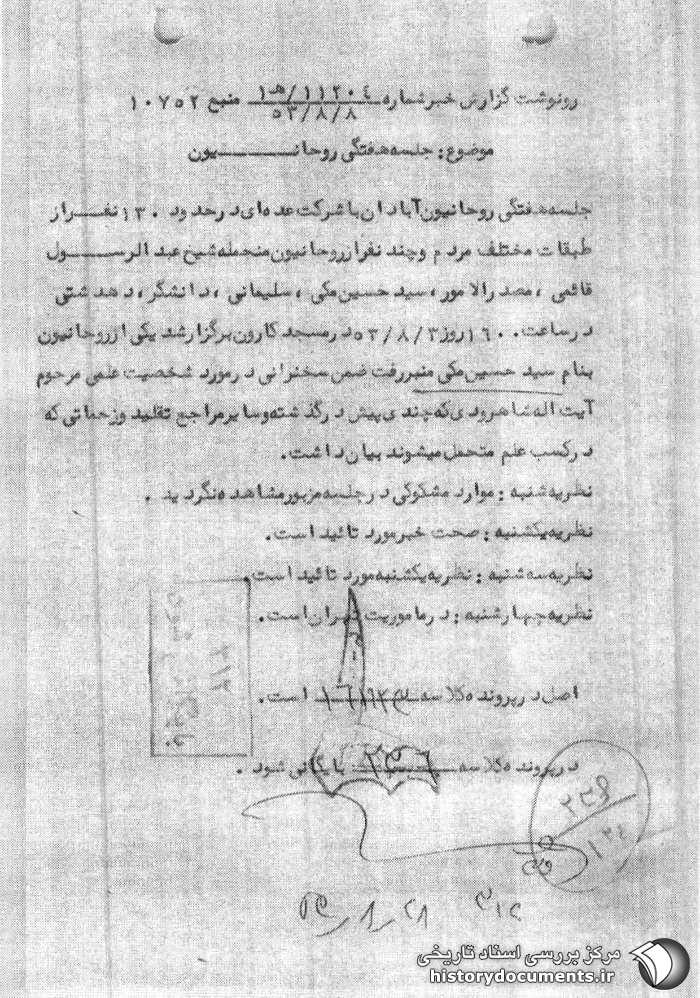 رونوشت گزارش خبر شماره ۱۱۲۰۴/هـ۱ منبع ۱۰۷۵۲
۵۳/۸/۸
موضوع: جلسه هفتگی روحانیون
جلسه هفتگی روحانیون آبادان با شرکت عده‌ای در حدود ۱۳۰ نفر از
طبقات مختلف مردم و چند نفر از روحانیون منجمله شیخ عبدالرسول
قائمی، صدرالامور، سید حسین مکی، سلیمانی، دانشگر، دهدشتی
در ساعت ۱۶۰۰ روز ۵۳/۸/۳ در مسجد کارون برگزار شد یکی از روحانیون
بنام سید حسین مکی منبر رفت ضمن سخنرانی در مورد شخصیت علمی مرحوم
آیت اله شاهرودی که چندی پیش درگذشته و سایر مراجع تقلید و زحماتی که
در کسب علم متحمل میشوند بیان داشت.
نظریه شنبه: موارد مشکوکی در جلسه مزبور مشاهده نگردید.
نظریه یکشنبه: صحت خبر مورد تائید است.
نظریه سه شنبه: نظریه یکشنبه مورد تائید است.
نظریه چهارشنبه: در ماموریت تهران است.
اصل در پرونده کلاسه است.
در پرونده کلاسه بایگانی شود.
۳۱۲
مرکز بررسی اسناد تاریخی
historydocuments.ir